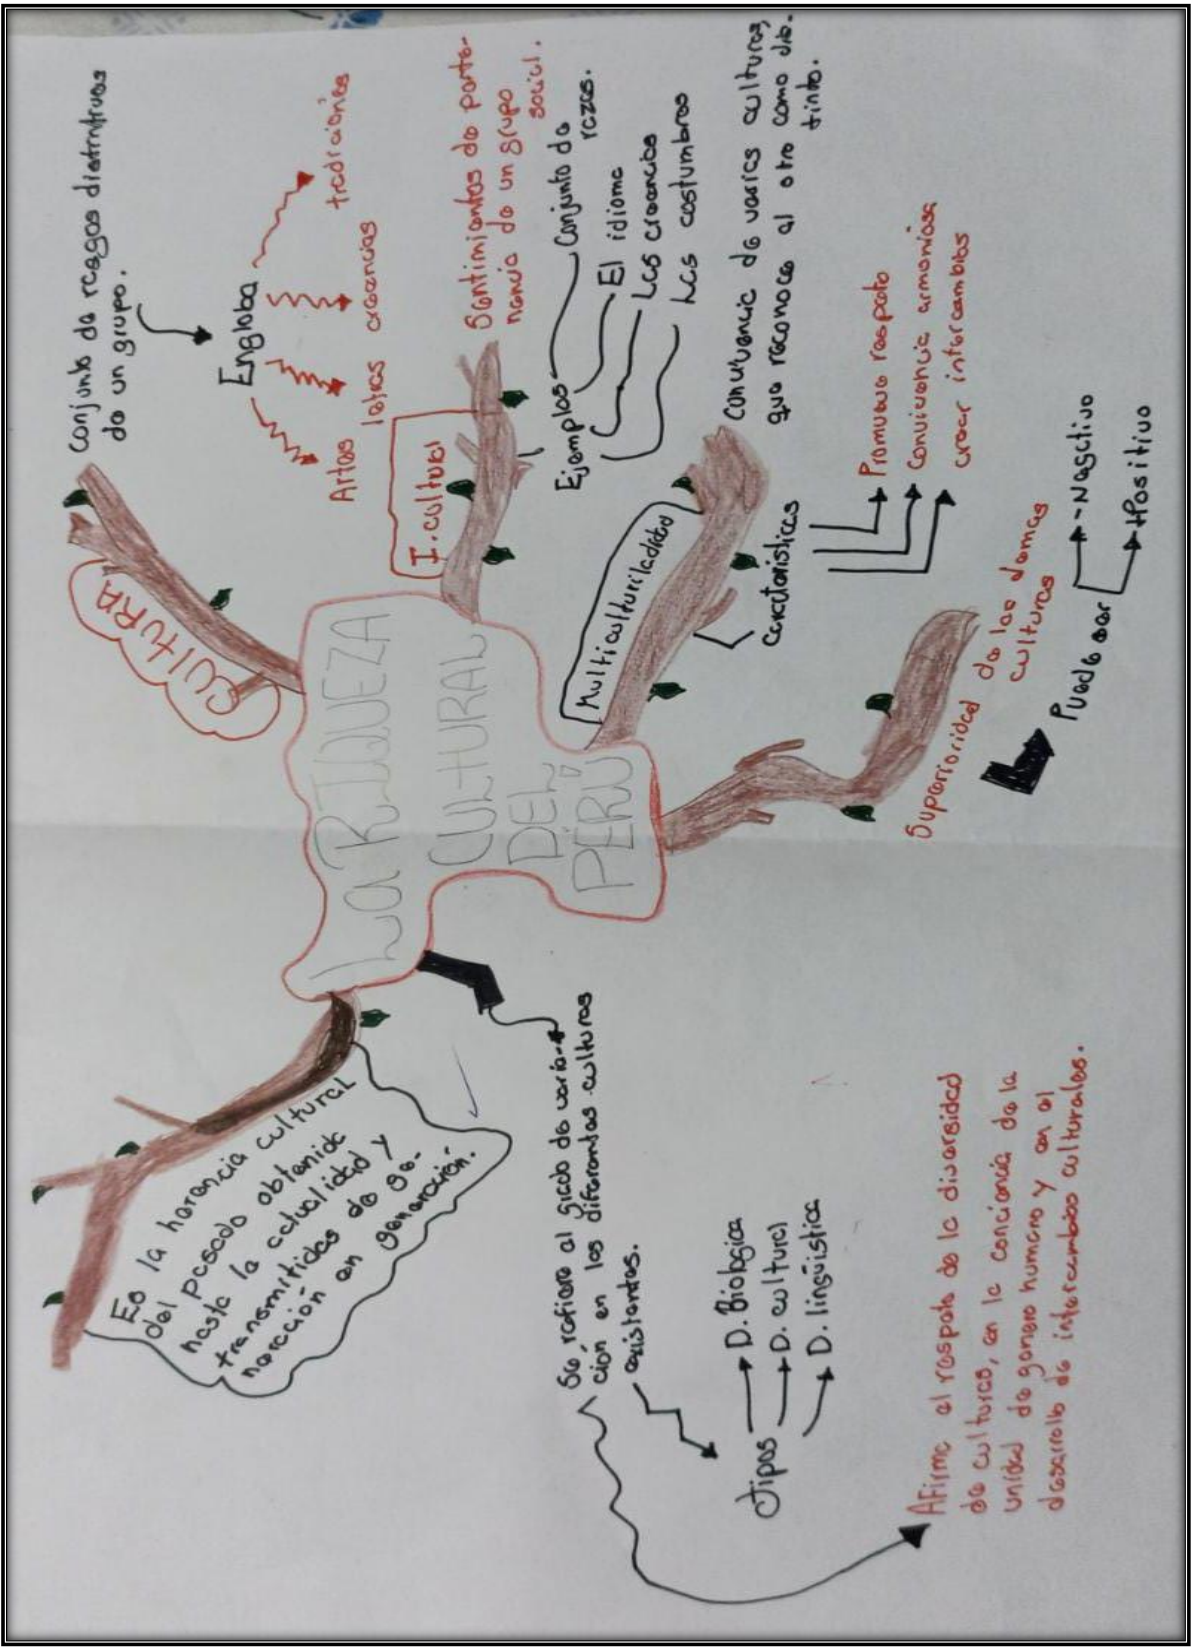 LA RIQUEZA
CULTURAL
DEL
PERÚ
CULTURA
Conjunto de rasgos distintivos
de un grupo.
Engloba
Artes
letras
creencias
tradiciones
I. cultural
Sentimientos de perte-
nencia de un grupo
social.
Ejemplos
Conjunto de
razas.
El idioma
Las creencias
Las costumbres
Multiculturiladidad
Convivencia de varias culturas,
que reconoce al otro como dis-
tinto.
características
Promueve respeto
Convivencia armoniosa
crear intercambios
Superioridad de las demas
culturas
Puede ser
-Negativo
+Positivo
Es la herencia cultural
del pasado obtenida
hasta la actualidad y
transmitidas de ge-
neración en generación.
Se refiere al grado de varia-
ción en las diferentes culturas
existentes.
Tipos
D. Biologica
D. cultural
D. lingüistica
Afirma el respeto de la diversidad
de culturas, en la conciencia de la
unidad de genero humano y en el
desarrollo de intercambios culturales.